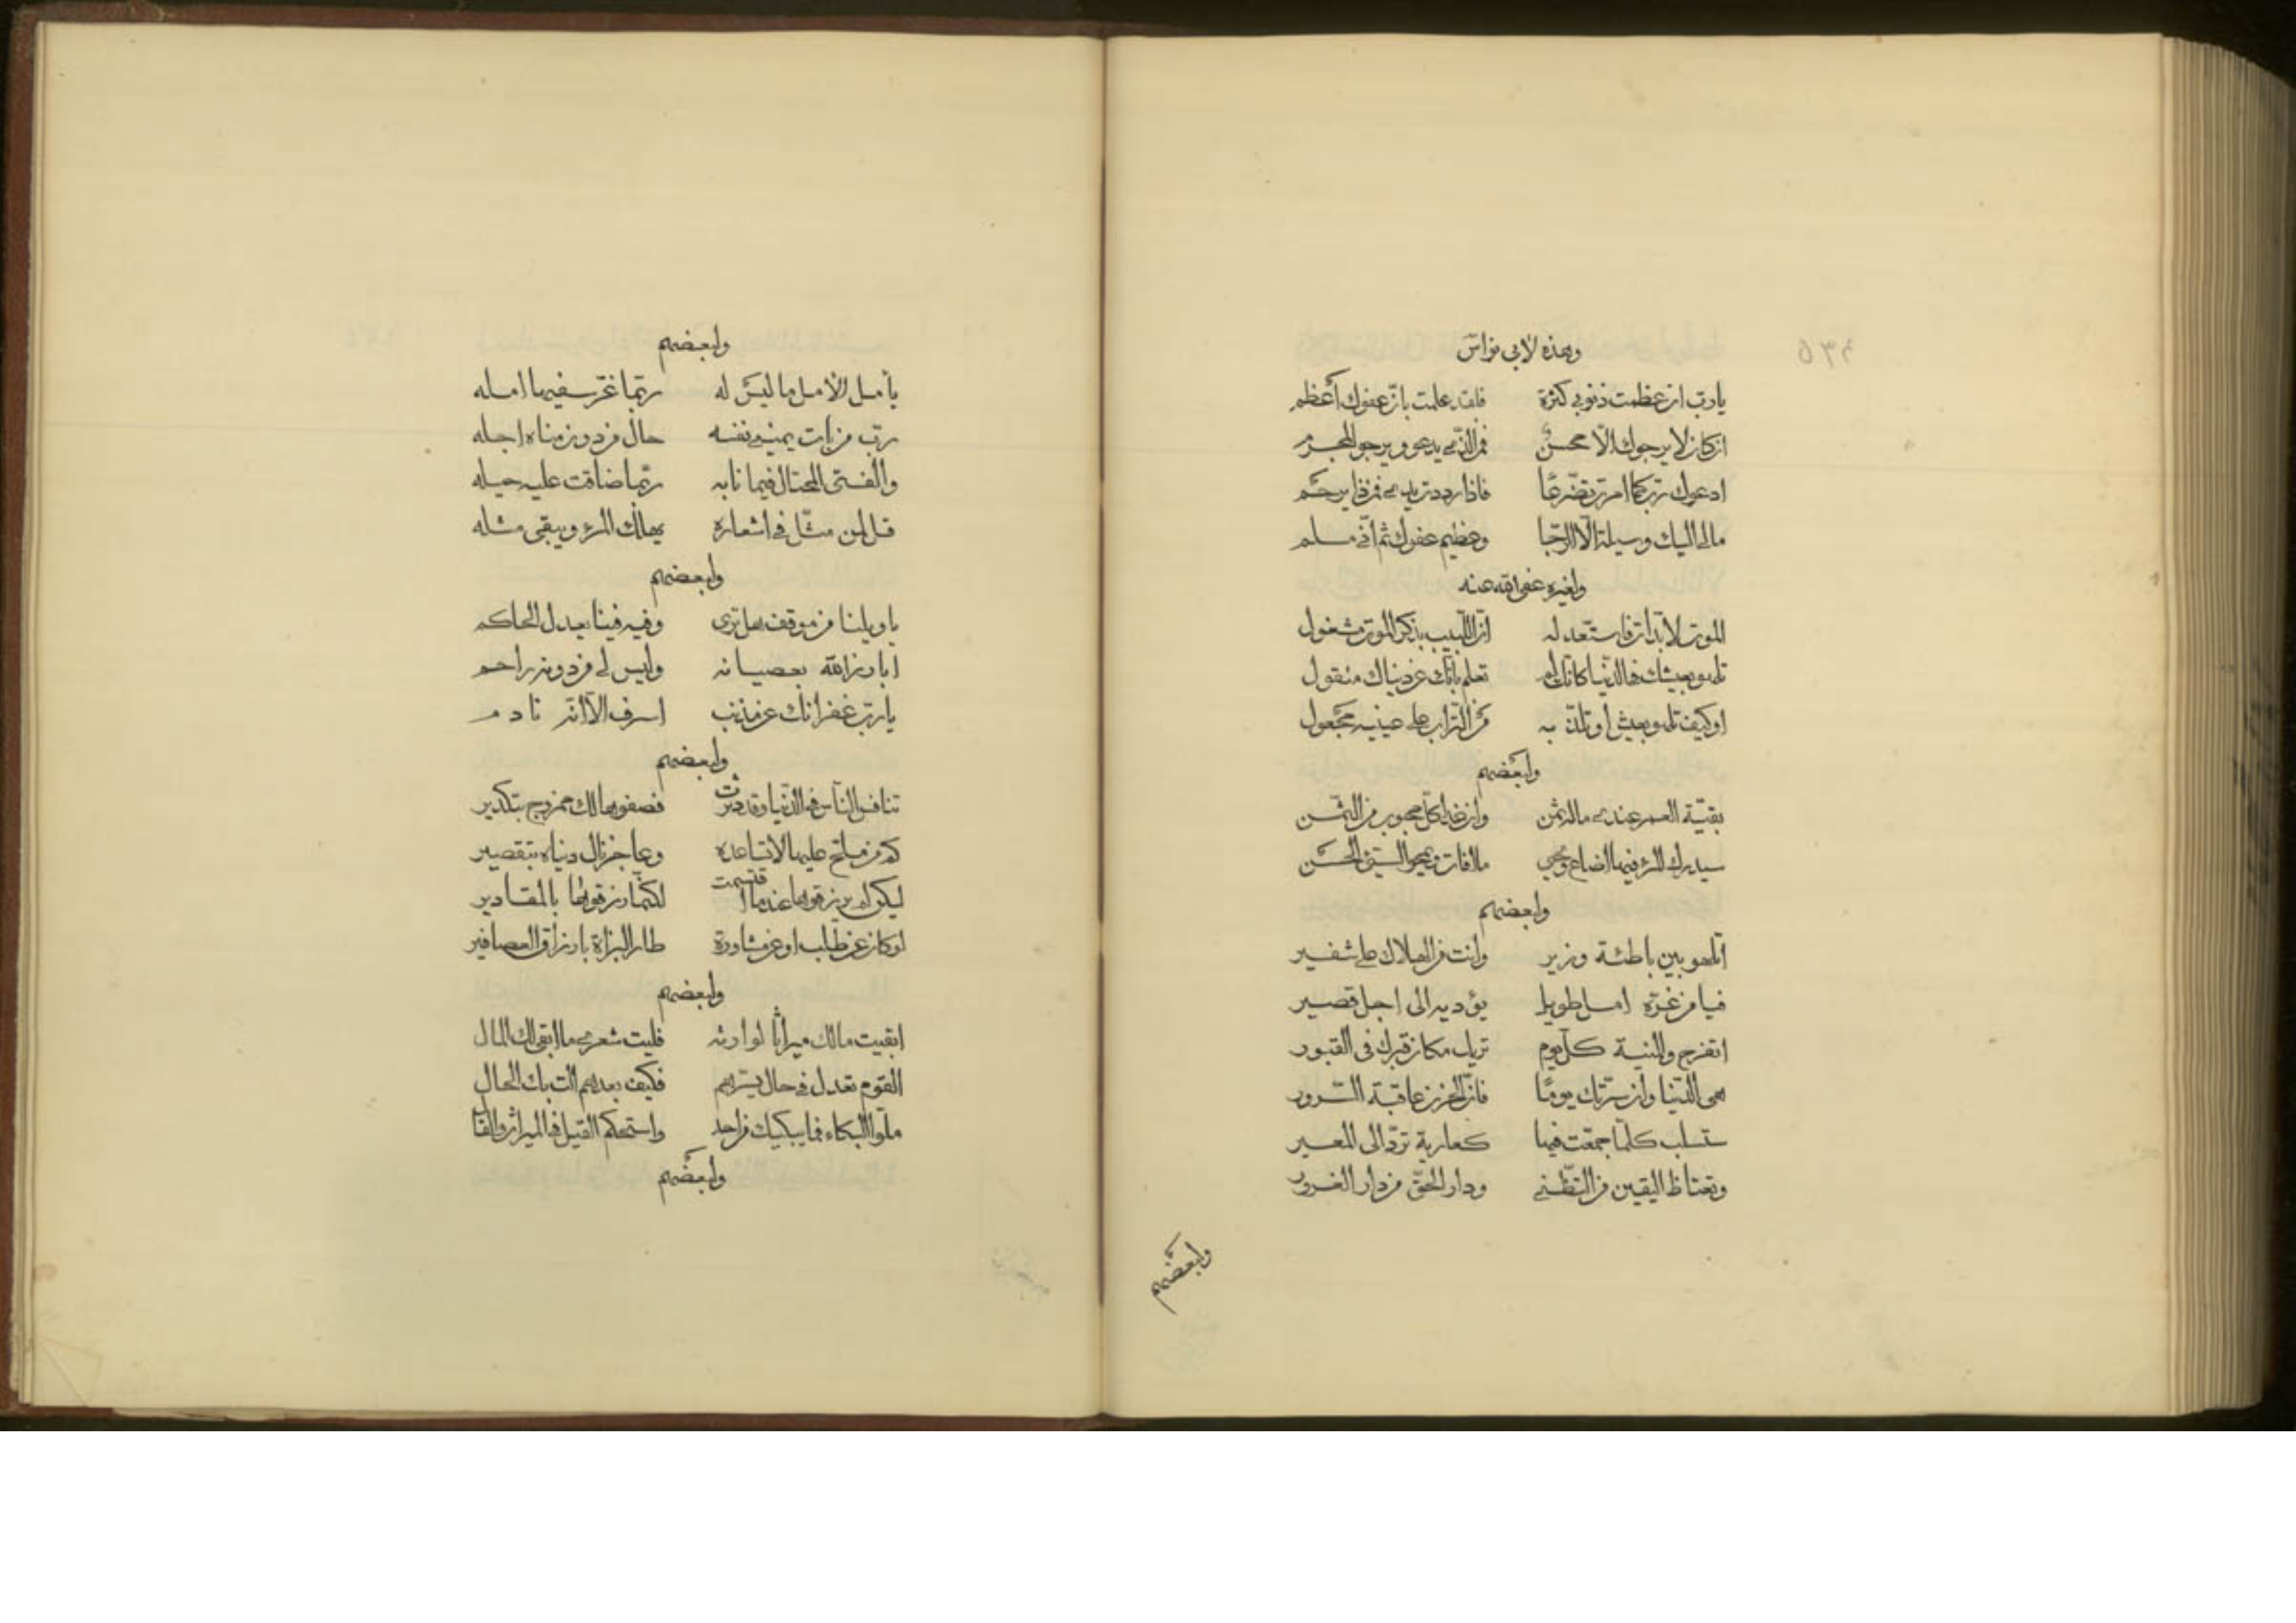 وهذه لابي نواس
يا رب ان عظمت ذنوبي كثرة فلقد علمت بان عفوك أعظم
ان كان لا يرجوك الا محسن فمن الذي يدعو ويرجو المجرم
ادعوك رب كما امرت تضرعا فاذا رددت يدي فمن ذا يرحم
مالي اليك وسيلة الا الرجا وعظيم عفوك ثم اني مسلم
ولغيره عفى الله عنه
الموت لا بد ات فاستعد له ان اللبيب بذكر الموت مشغول
تلهو بعيشك في الدنيا كانك لم تعلم بانك عن دنياك منقول
او كيف تلهو بعيش أو تلذ به من التراب على عينيه مجعول
ولبعضهم
بقية العمر عندي ماله ثمن وان غدا كل محبوب من الثمن
سيدرك المرء فيها اضاع ويحيي ما افات ويمحو السيئ الحسن
ولبعضهم
اتلهو بين باطئة وزير وانت من الهلاك على شفير
فيا من غره امل طويل يؤديه الى اجل قصير
اتفرح والمنية كل يوم تريك مكان قبرك فى القبور
هى الدنيا وان سرتك يوما فان الحزن عاقبة السرور
ستسلب كلما جمعت فيها كعارية ترد الى المعير
وتعتاظ اليقين من التظني ودار الحق من دار الغرور
ولبعضهم
ولبعضهم
يأمل الأمل ما ليس له ربما غر سفيها امله
رب من بات يمنيه نفسه حال من دون مناه اجله
والفتى المحتال فيما نابه ربما ضاقت عليه حيله
قل لمن مثل في اشعاره يهلك المرء ويبقى مثله
ولبعضهم
يا ويلنا من موقف هل ترى وفيه فينا يعدل الحاكم
ابارز الله بعصيانه وليس لي من دونه راحم
يا رب غفرانك عن مذنب اسرف الا انه نادم
ولبعضهم
تنافس الناس في الدنيا وقد دبرت فصفوها لك ممزوج بتكدير
كم من ملح عليها لا تساعده وعاجز نال دنياه بتقصير
لكن لم يرزقوها عندما قسمت لكنما رزقوها بالمقادير
لو كان عن طلب او عن مشاورة طار البزاة بارزاق العصافير
ولبعضهم
ابقيت مالك ميراثا لوارثه فليت شعري ما ابقى لك المال
القوم بعدك في حال يسرهم فكيف بعدهم انت بك الحال
ملوا البكاء فما يبكيك من احد واستحكم القيل في الميراث والقال
ولبعضهم